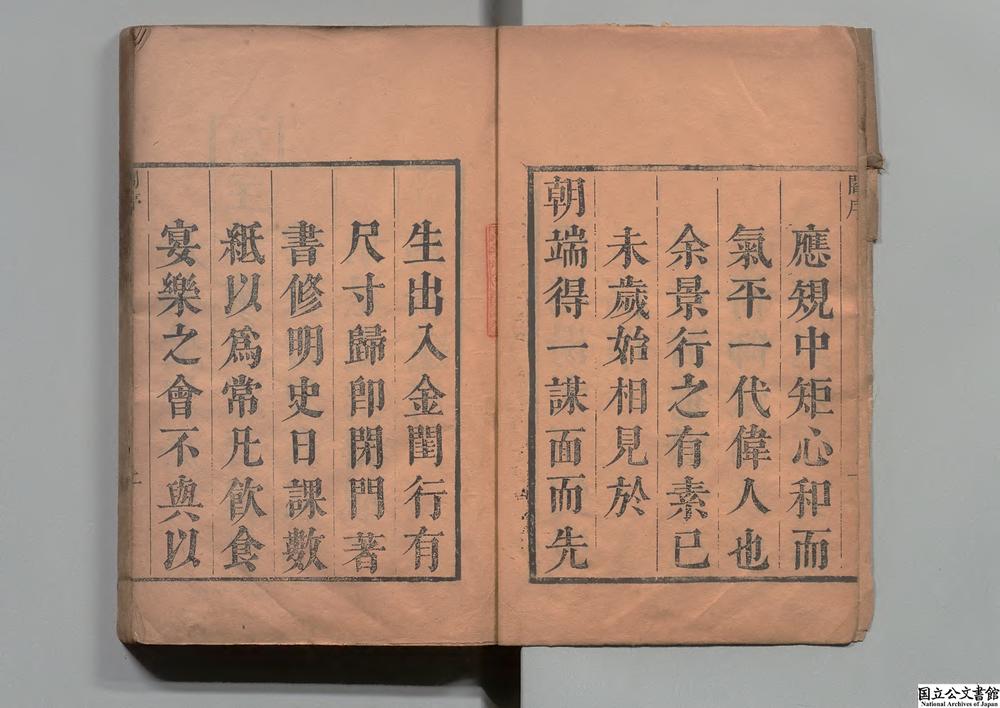 應䂓中矩心和而
氣平一代偉人也
余景行之有素己
未歲始相見於
朝端得一謀面而先
生出入金閨行有
尺寸歸卽閑門著
書修明史日課數
紙以爲常凡飮食
宴樂之會不與以
国立公文書館
National Archives of Japan